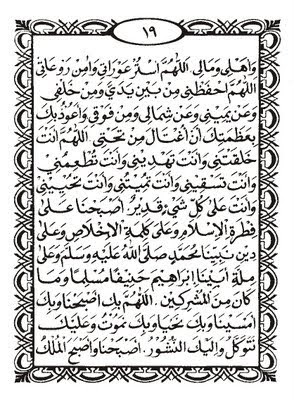 ١٩
وَأَهْلِي وَمَالِي اَللّٰهُمَّ اسْتُرْ عَوْرَاتِي وَاٰمِنْ رَوْعَاتِي
اَللّٰهُمَّ احْفَظْنِي مِنْ بَيْنِ يَدَيَّ وَمِنْ خَلْفِي
وَعَنْ يَمِينِي وَعَنْ شِمَالِي وَمِنْ فَوْقِي وَأَعُوذُ بِكَ
بِعَظَمَتِكَ أَنْ أُغْتَالَ مِنْ تَحْتِي اَللّٰهُمَّ أَنْتَ
خَلَقْتَنِي وَأَنْتَ تَهْدِينِي وَأَنْتَ تُطْعِمُنِي
وَأَنْتَ تَسْقِينِي وَأَنْتَ تُمِيتُنِي وَأَنْتَ تُحْيِينِي
وَأَنْتَ عَلَى كُلِّ شَيْءٍ قَدِيرٌ. أَصْبَحْنَا عَلَى
فِطْرَةِ الْإِسْلَامِ وَعَلَى كَلِمَةِ الْإِخْلَاصِ وَعَلَى
دِينِ نَبِيِّنَا مُحَمَّدٍ صَلَّى اللهُ عَلَيْهِ وَسَلَّمَ وَعَلَى
مِلَّةِ أَبِينَا إِبْرَاهِيمَ حَنِيفًا مُسْلِمًا وَمَا
كَانَ مِنَ الْمُشْرِكِينَ. اَللّٰهُمَّ بِكَ أَصْبَحْنَا وَبِكَ
أَمْسَيْنَا وَبِكَ نَحْيَا وَبِكَ نَمُوتُ وَعَلَيْكَ
نَتَوَكَّلُ وَإِلَيْكَ النُّشُورُ. أَصْبَحْنَا وَأَصْبَحَ الْمُلْكُ